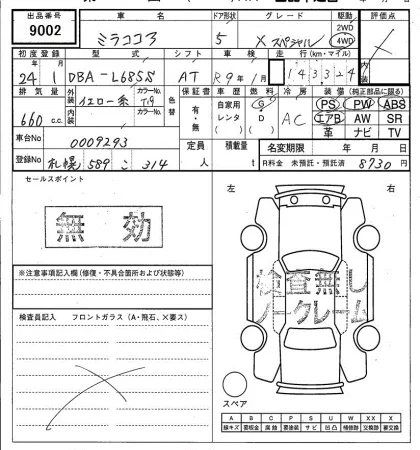 出品番号 車名 ドア形状 グレード 駆動 評価点
9002 ミラココア 5 Xスペシャル 2WD 4WD
初度登録 型式 シフト 車検 走行(km・マイル) 内装
24年1月 DBA-L685S AT R9年 月 143324
排気量 外装 内装 イエロー系 カラーNo. T19 色替 保証書 車歴 燃料 冷房 装備(純正部品に限る)
660 c.c. カラーNo. 有・無 自家用 レンタ ( ) G D ( ) AC PS PW ABS
エアB AW SR
革 ナビ TV
車台No 0009293 定員 人 積載量 t 名変期限 年 月 日
登録No 札幌 589 こ 314 R料金 未預託・預託済 8730円
セールスポイント
無効
左 右
※注意事項記入欄(修復・不具合箇所および状態等)
検査無し
ノークレーム
検査員記入 フロントガラス(A・飛石、×要ス)
スペア
A B C P S U W X XX
線キズ 要板金 腐蝕 要塗装 サビ 凹凸 補修跡 交換跡 要交換